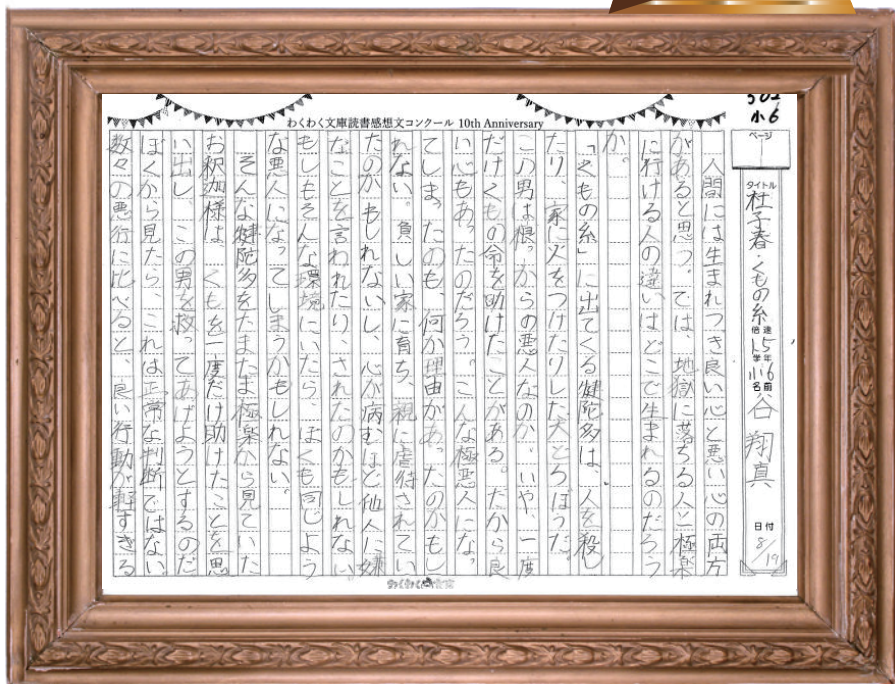 わくわく文庫読書感想文コンクール 10th Anniversary
502
小6
ページ
1
タイトル
杜子春・くもの糸
倍速
1.5
学年
小6
名前
谷 翔真
日付
8/19
人間には生まれつき良い心と悪い心の両方
があると思う。では、地獄に落ちる人と極楽
に行ける人の違いはどこで生まれるのだろう
か。
「くもの糸」に出てくる犍陀多は、人を殺し
たり、家に火をつけたりした大どろぼうだ。
この男は根っからの悪人なのか。いや、一度
だけくもの命を助けたことがある。だから良
い心もあったのだろう。こんな極悪人になっ
てしまったのも、何か理由があったのかもし
れない。貧しい家に育ち、親に虐待されてい
たのかもしれないし、心が病むほど他人に嫌
なことを言われたり、されたのかもしれない。
もしもそんな環境にいたら、ぼくも同じよう
な悪人になってしまうかもしれない。
そんな犍陀多をたまたま極楽から見ていた
お釈迦様は、くもを一度だけ助けたことを思
い出し、この男を救ってあげようとするのだ
ぼくから見たら、これは正常な判断ではない。
数々の悪行に比べると、良い行動が軽すぎる
わくわく文庫